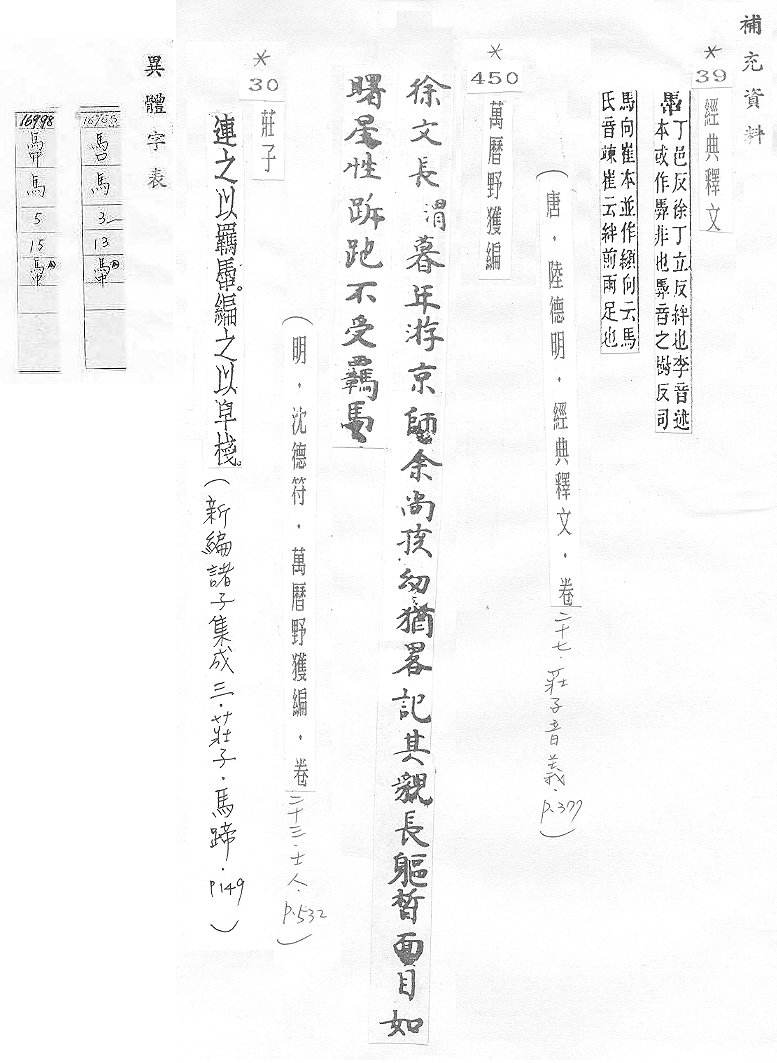 補充資料
*
39
經典釋文
馽丁邑反徐丁立反絆也李音述
本或作馵非也馵音之樹反司
馬向崔本並作纇向云馬
氏音竦崔云絆前兩足也
(唐．陸德明．經典釋文．卷二十七．莊子音義．P.377)
*
450
萬曆野獲編
徐文長渭暮年游京師余尚孩幼猶畧記其貌長軀皙面目如
曙星性跅跎不受羈馽
(明．沈德符．萬曆野獲編．卷二十三．士人．P.532)
*
30
莊子
連之以羈馽。編之以皁棧。(新編諸子集成三．莊子．馬蹄．P149)
異體字表
馬
3
13
16998
馬
5
15